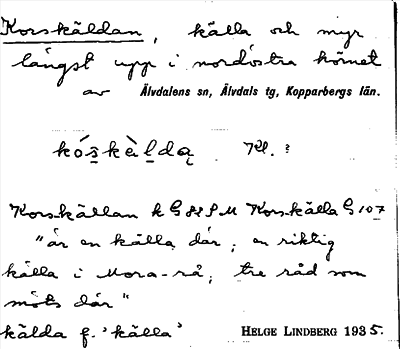 Korskäldan, källa och myr
längst upp i nordöstra hörnet
av Älvdalens sn, Älvdals tg, Kopparbergs län.
kóskèldą Kl.?
Korskällan k G 82 S M Korskälla G 107
"är en källa där; en riktig
källa i Mora-rå; tre råd som
möts där"
kälda f. 'källa'
HELGE LINDBERG 1935.